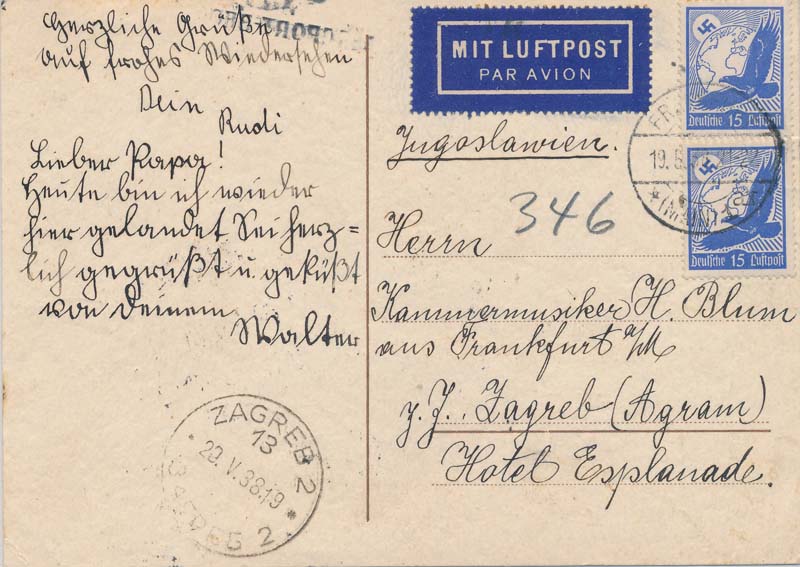 Herzliche Grüße
auf frohes Wiedersehen
Dein
Rudi
Lieber Papa!
Heute bin ich wieder
hier gelandet Sei herz=
lich gegrüßt u. geküßt
von Deinem
Walter
ZAGREB 2
13
20.V.38.19
ZAGREB 2
MIT LUFTPOST
PAR AVION
Deutsche 15 Luftpost
Deutsche 15 Luftpost
19.5.
(MAIN)
Jugoslawien.
346
Herrn
Kammermusiker H. Blum
aus Frankfurt a/M
z. Z. Zagreb (Agram)
Hotel Esplanade.